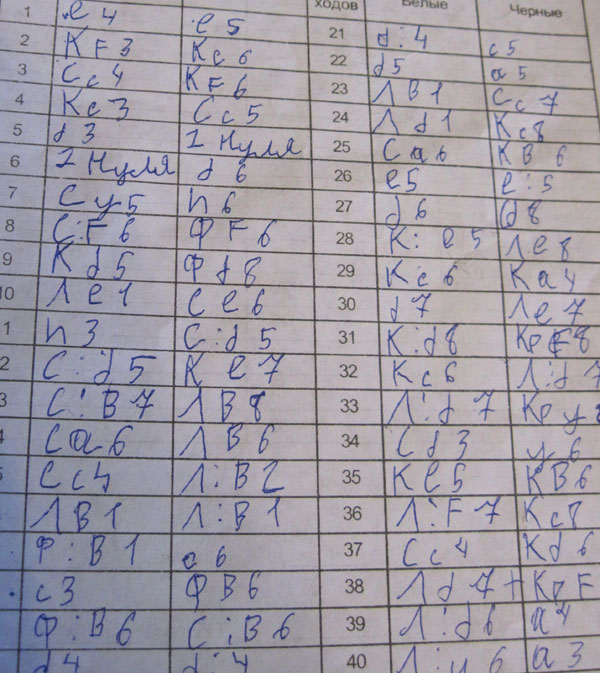 ходов Белые Черные
1 e4 e5 21 d:4 c5
2 КF3 Кc6 22 d5 a5
3 Сc4 КF6 23 ЛВ1 Сc7
4 Кc3 Сc5 24 Лd1 Кc8
5 d3 2 Нуля 25 Сa6 КВ6
6 2 Нуля d6 26 e5 e:5
7 Сy5 h6 27 d6 d8
8 С:F6 ФF6 28 К:e5 Лe8
9 Кd5 Фd8 29 Кc6 Кa4
10 Лe1 Сe6 30 d7 Лe7
1 h3 С:d5 31 К:d8 КрF8
2 С:d5 Кe7 32 Кc6 Л:d7
3 С:В7 ЛВ8 33 Л:d7 Кру
4 Сa6 ЛВ6 34 Сd3 y6
Сc4 Л:В2 35 Кe5 КВ6
ЛВ1 Л:В1 36 Л:F7 Кc8
Ф:В1 c6 37 Сc4 Кd6
c3 ФВ6 38 Лd7+ КрF
Ф:В6 С:В6 39 Л:d6 a4
d4 d:4 40 Л:y6 a3